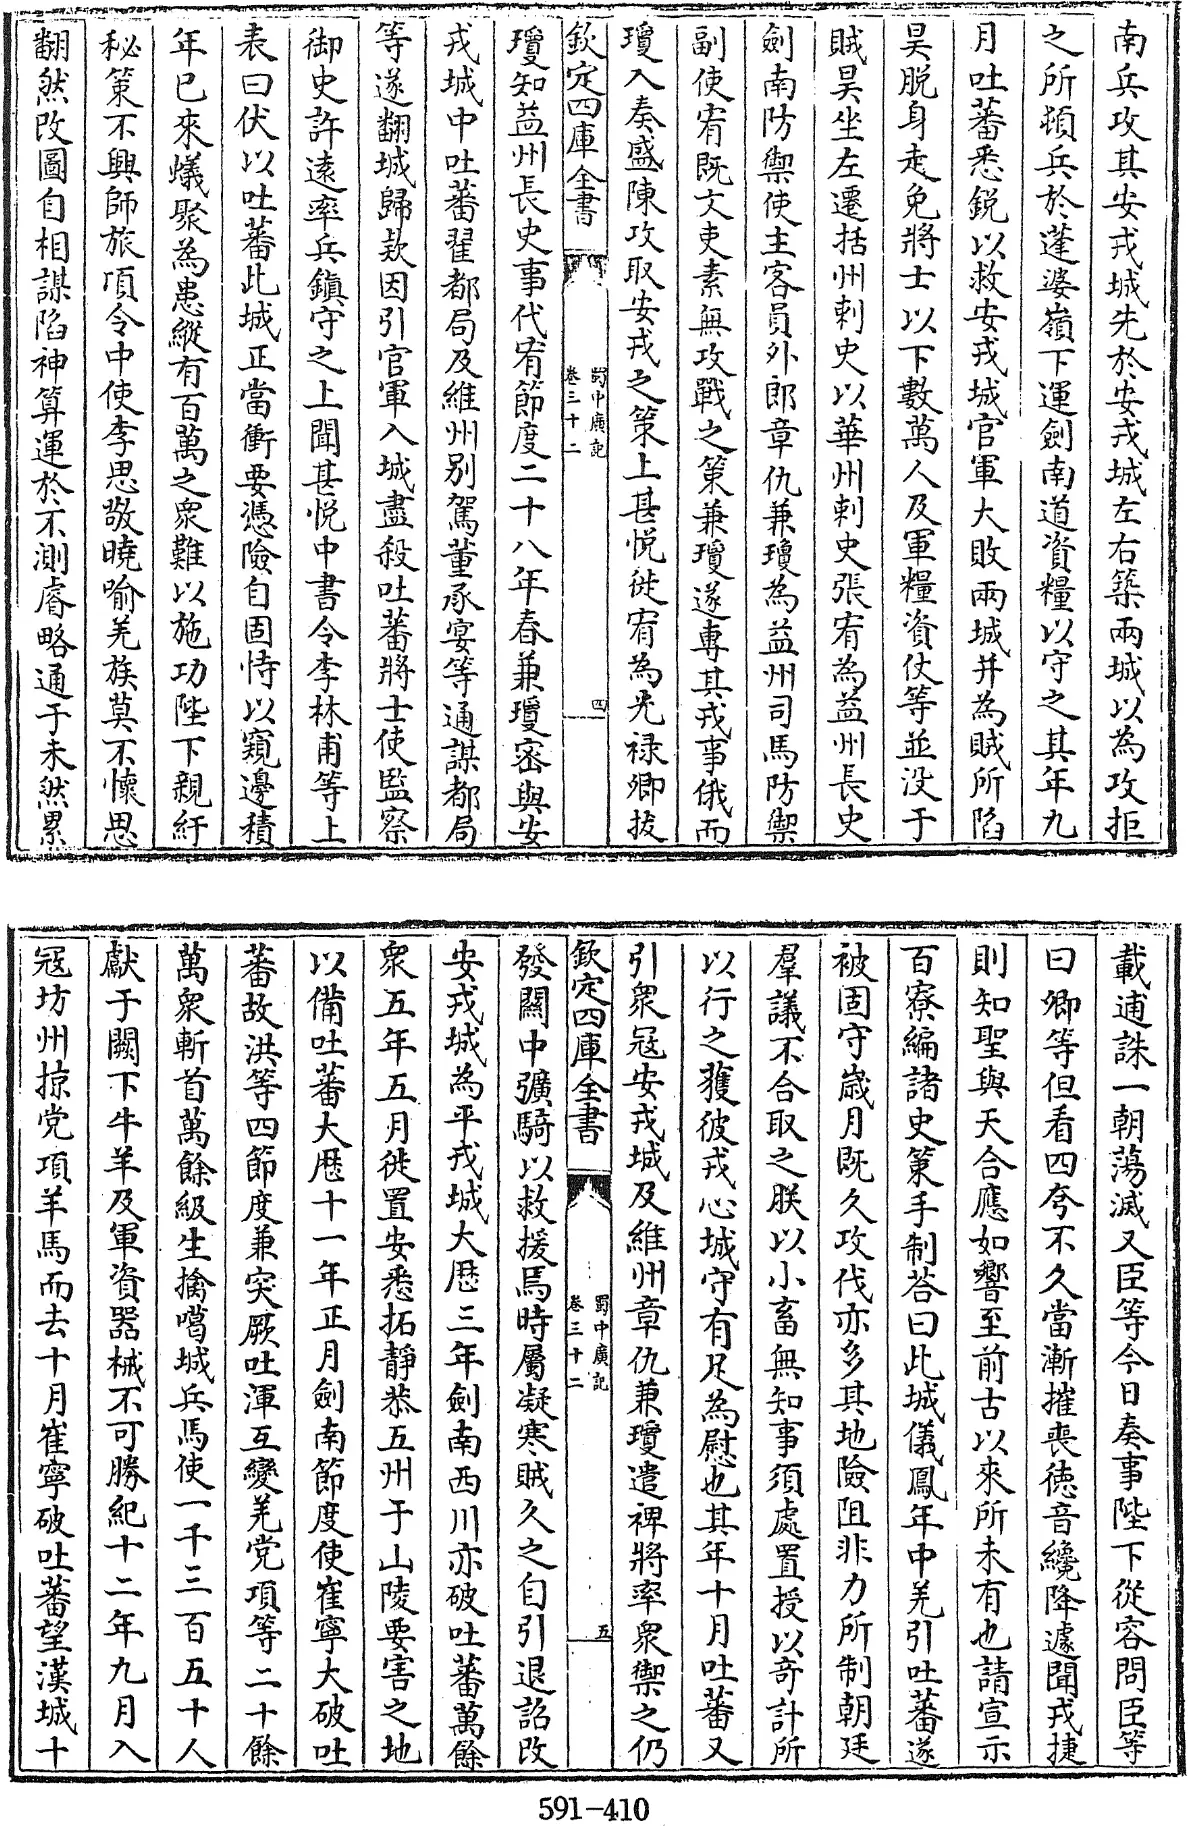 南兵攻其安戎城先於安戎城左右築兩城以為攻拒
之所頓兵於蓬婆嶺下運劍南道資糧以守之其年九
月吐蕃悉銳以救安戎城官軍大敗兩城并為賊所陷
昊脱身走免將士以下數萬人及軍糧資仗等並没于
賊昊坐左遷括州刺史以華州刺史張宥為益州長史
劍南防禦使主客員外郎章仇兼瓊為益州司馬防禦
副使宥既文吏素無攻戰之策兼瓊遂專其戎事俄而
瓊入奏盛陳攻取安戎之策上甚悦徙宥為光禄卿拔
欽定四庫全書
蜀中廣記
卷三十二
四
瓊知益州長史事代宥節度二十八年春兼瓊密與安
戎城中吐蕃翟都局及維州别駕董承宴等通謀都局
等遂翻城歸款因引官軍入城盡殺吐蕃將士使監察
御史許遠率兵鎮守之上聞甚悦中書令李林甫等上
表曰伏以吐蕃此城正當衝要憑險自固恃以窺邊積
年已來蟻聚為患縱有百萬之衆難以施功陛下親紆
秘策不興師旅頃令中使李思敬曉喻羌族莫不懷思
翻然改圖自相謀陷神算運於不測睿略通于未然累
載逋誅一朝蕩滅又臣等今日奏事陛下從容問臣等
曰卿等但看四夸不久當漸摧喪徳音纔降遽聞戎捷
則知聖與天合應如響至前古以來所未有也請宣示
百寮編諸史策手制荅曰此城儀鳳年中羌引吐蕃遂
被固守歳月既久攻伐亦多其地險阻非力所制朝廷
羣議不合取之朕以小畜無知事須處置授以奇計所
以行之獲彼戎心城守有足為慰也其年十月吐蕃又
引衆冦安戎城及維州章仇兼瓊遣裨將率衆禦之仍
欽定四庫全書
蜀中廣記
卷三十二
五
發關中彍騎以救援焉時屬凝寒賊久之自引退詔改
安戎城為平戎城大厯三年劍南西川亦破吐蕃萬餘
衆五年五月徙置安悉拓静恭五州于山陵要害之地
以備吐蕃大厯十一年正月劍南節度使崔寧大破吐
蕃故洪等四節度兼突厥吐渾互變羌党項等二十餘
萬衆斬首萬餘級生擒噶城兵馬使一千三百五十人
獻于闕下牛羊及軍資器械不可勝紀十二年九月入
冦坊州掠党項羊馬而去十月崔寧破吐蕃望漢城十
591-410